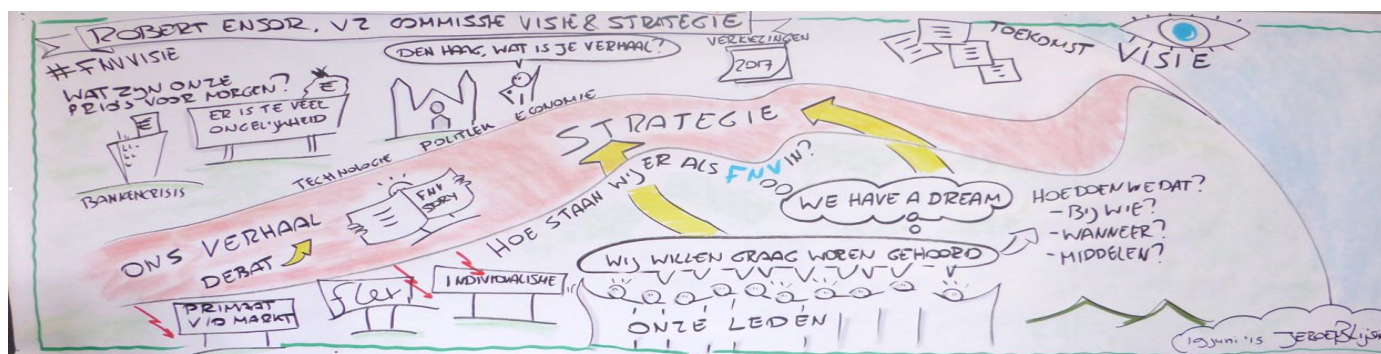 ROBERT ENSOR, VZ COMMISSIE VISIE & STRATEGIE
#FNVVISIE
WAT ZIJN ONZE
PRIO'S VOOR MORGEN?
€
ER IS TE VEEL
ONGELIJKHEID
€
BANKENCRISIS
DEN HAAG, WAT IS JE VERHAAL?
VERKIEZINGEN
2017
TOEKOMST
VISIE
TECHNOLOGIE POLITIEK ECONOMIE
STRATEGIE
ONS VERHAAL
DEBAT
FNV
STORY
HOE STAAN WIJ ER ALS FNV IN?
WE HAVE A DREAM
HOE DOEN WE DAT?
- BIJ WIE?
- WANNEER?
- MIDDELEN?
WIJ WILLEN GRAAG WOREN GEHOORD
ONZE LEDEN
PRIMAAT
V/D MARKT
INDIVIDUALISME
19 juni '15